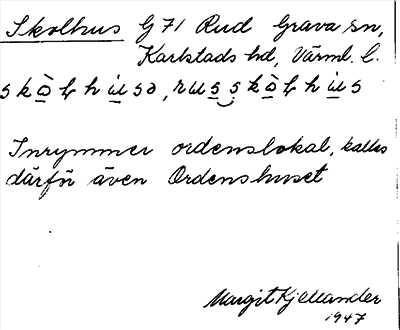 Skolhus G 71 Rud Grava sn,
Karlstads hd, Värml. l.
skò̱ɫhu̱sə, rus̱s̱kò̱ɫhu̱s
Inrymmer ordenslokal, kallas
därför även Ordenshuset
Margit Kjellander
1947